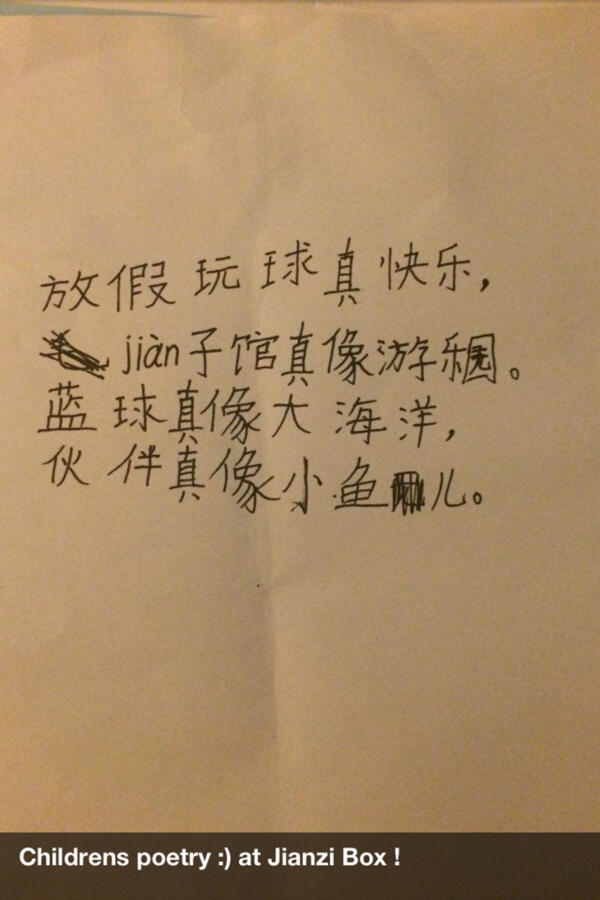 放假玩球真快乐，
jiàn子馆真像游乐园。
蓝球真像大海洋，
伙伴真像小鱼儿。
Childrens poetry :) at Jianzi Box !